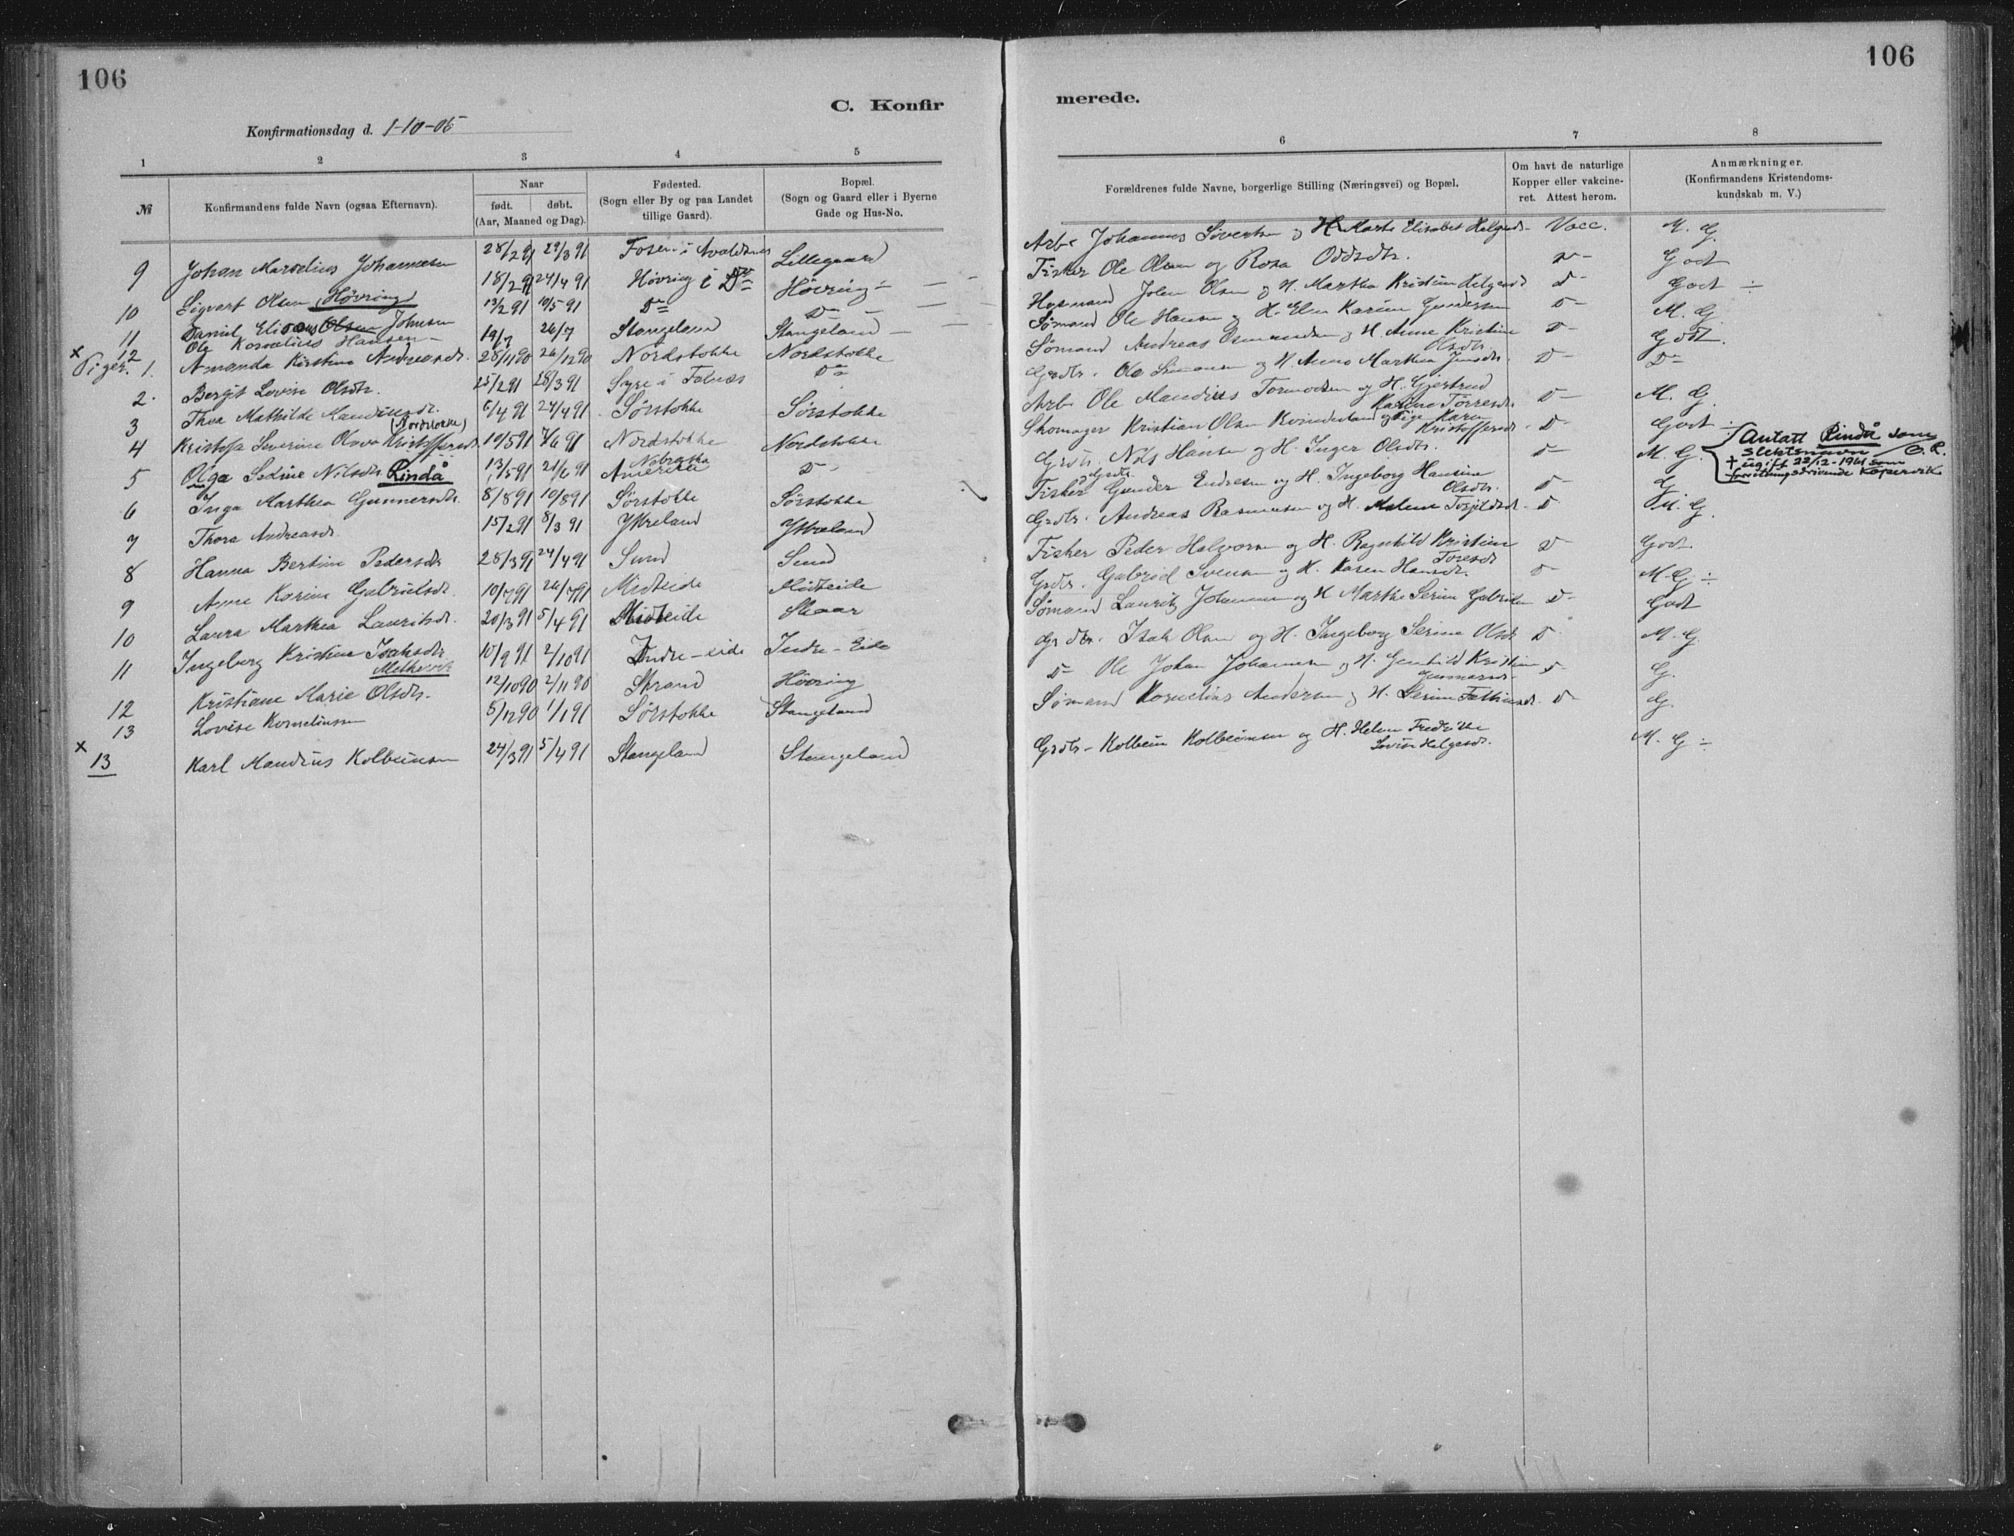 106
106
C. Konfir
merede.
Konfirmationsdag d. 1-10-05
1 2 3 4 5 6 7 8
№
Konfirmandens fulde Navn (ogsaa Efternavn).
Naar
født. døbt.
(Aar, Maaned og Dag).
Fødested.
(Sogn eller By og paa Landet
tillige Gaard).
Bopæl.
(Sogn og Gaard eller i Byerne
Gade og Hus-No.
Forældrenes fulde Navne, borgerlige Stilling (Næringsvei) og Bopæl.
Om havt de naturlige
Kopper eller vakcine-
ret. Attest herom.
Anmærkninger.
(Konfirmandens Kristendoms-
kundskab m. V.)
9 Johan Marselius Johannesen 28/2 91 29/3 91 Fosen i Avaldsnes Lillegaard Arb. Johannes Sivertsen og H. Marte Elisabet Helgesd. Vacc. M. G.
10 Sigvart Olsen (Høvring) 18/2 91 24/4 91 Høvring i Do Høvring Fisker Ole Olsen og Rosa Oddsdtr. D— Godt
11 Daniel Elias Olsen Johnsen 13/2 91 10/5 91 Do Do Husmand John Olsen og H. Martha Kristine Helgesd D— Godt ÷
x 12 Ole Kornelius Hansen 19/7 26/7 Stangeland Stangeland Sømand Ole Hansen og H. Elen Karine Gundersen D— M. G.
Piger. 1. Amanda Kristine Andreasdr. 28/11 90 26/12 90 Nordstokke Nordstokke Sømand Andreas Osmundsen og H. Anne Kristine Olsdtr. D— Godt.
2. Bergit Lovise Olsdtr. 25/2 91 28/3 91 Syre i Falnæs Do Grdbr. Ole Simonsen og H. Anne Marthea Jensdtr. D— Do
3 Thea Mathilde Mandiusdr. 6/4 91 24/4 91 Sørstokke Sørstokke Arb. Ole Mandius Tormodsen og H. Gjertrud Karine Torresdr. D— M. G.
4 Kristofa Severine Olava Kristoffersdr (Nordstokke) 10/5 91 7/6 91 Nordstokke Nordstokke Skomager Kristian Olsen Kvinnesland og Pige Karen Kristoffersdr. D— Godt ÷
5 Olga Sedine Nilsdtr Rindå 13/5 91 21/6 91 Nebraska Amerika D— Grdbr. Nils Hansen og H. Inger Olsdtr. D— M. G.
Antatt Rindå som
slektsnavn O.R.
† ugift 22/12-1961 som
forretningsdrivende Kopervik
6 Inga Marthea Gunnersdr. 8/8 91 10/8 91 Sørstokke Sørstokke Fisker Grdbr. Gunder Endresen og H. Ingeborg Hansine Olsdtr. D— G.
7 Thora Andreasdr. 15/2 91 8/3 91 Ytreland Ytreland Grdbr. Andreas Rasmussen og H. Malene Torjilsdr. D M. G.
8 Hanna Bertine Pedersdtr 28/3 91 24/4 91 Sund Sund Fisker Peder Halvorsen og H. Ragnhild Kristine Toresdr D— Godt
9 Anne Karine Gabrielsdr. 10/7 91 26/7 91 Midteide Midteide Grdbr. Gabriel Svensen og H. Karen Hansdr. D— M. G. ÷
10 Laura Marthea Lauritsdr. 20/3 91 5/4 91 Midteide Skaar Sømand Lauritz Johannesen og H Marthe Serine Gabrielsen D— Godt
11 Ingeborg Kristine Isaksdtr Melhus 10/9 91 2/10 91 Indre-eide Indre-Eide Grdbr. Isak Olsen og H. Ingeborg Serine Olsdr D M. G
12 Kristiane Marie Olsdtr. 12/10 90 2/11 90 Strand Høvring Do Ole Johan Johannesen og H. Gunhild Kristine Gunnarsdr D G.
13 Lovise Korneliussen 5/12 90 1/1 91 Sørstokke Stangeland Sømand Kornelius Andersen og H. Serine D— G.
x 13 Karl Mandius Kolbeinsen 24/3 91 5/4 91 Stangeland Stangeland Grdbr. Kolbein Kolbeinsen og H. Helene Fredrikke Lovise Helgesdr. M. G ÷